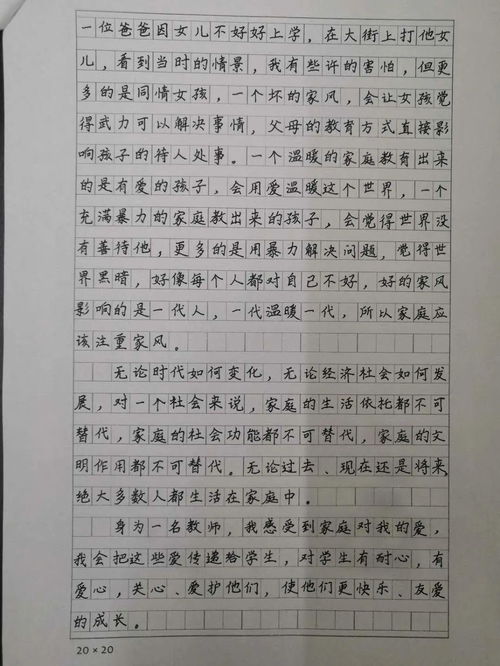 一位爸爸因女儿不好好上学，在大街上打他女
儿，看到当时的情景，我有些许的害怕，但更
多的是同情女孩，一个坏的家风，会让女孩觉
得武力可以解决事情，父母的教育方式直接影
响孩子的待人处事。一个温暖的家庭教育出来
的是有爱的孩子，会用爱温暖这个世界，一个
充满暴力的家庭教出来的孩子，会觉得世界没
有善待他，更多的是用暴力解决问题，觉得世
界黑暗，好像每个人都对自己不好，好的家风
影响的是一代人，一代温暖一代，所以家庭应
该注重家风。
无论时代如何变化，无论经济社会如何发
展，对一个社会来说，家庭的生活依托都不可
替代，家庭的社会功能都不可替代，家庭的文
明作用都不可替代。无论过去、现在还是将来，
绝大多数人都生活在家庭中。
身为一名教师，我感受到家庭对我的爱，
我会把这些爱传递给学生，对学生有耐心，有
爱心，关心、爱护他们，使他们更快乐、友爱
的成长。
20×20